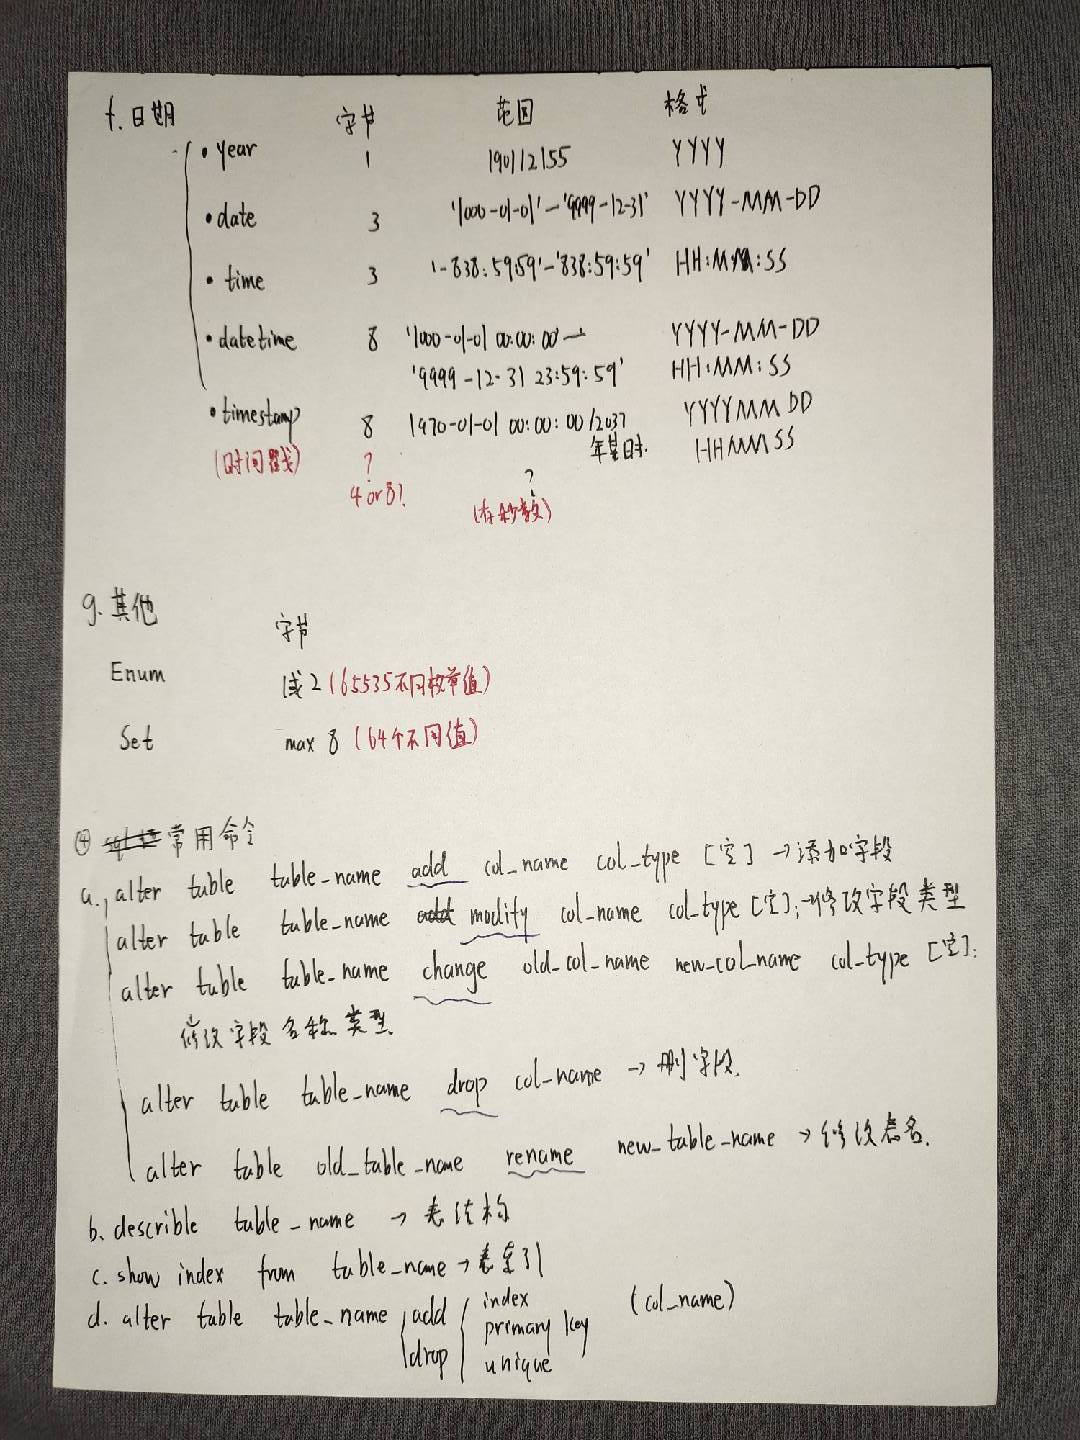 f. 日期 字节 范围 格式
• year 1 1901/2155 YYYY
• date 3 '1000-01-01'—'9999-12-31' YYYY-MM-DD
• time 3 '-838:59:59'-'838:59:59' HH:MM:SS
• datetime 8 '1000-01-01 00:00:00'— YYYY-MM-DD
'9999-12-31 23:59:59' HH:MM:SS
• timestamp 8 1970-01-01 00:00:00/2037 YYYYMMDD
(时间戳) ? 年某时. HHMMSS
4 or 8? ?
(存秒数)
g. 其他 字节
Enum 1或2 (65535不同枚举值)
Set max 8 (64个不同值)
④ 常用命令
a. alter table table_name add col_name col_type [空] → 添加字段
alter table table_name modify col_name col_type [空]; → 修改字段类型
alter table table_name change old_col_name new_col_name col_type [空];
修改字段名称类型.
alter table table_name drop col_name → 删字段.
alter table old_table_name rename new_table_name → 修改表名.
b. describle table_name → 表结构
c. show index from table_name → 表索引
d. alter table table_name add index (col_name)
primary key
drop unique